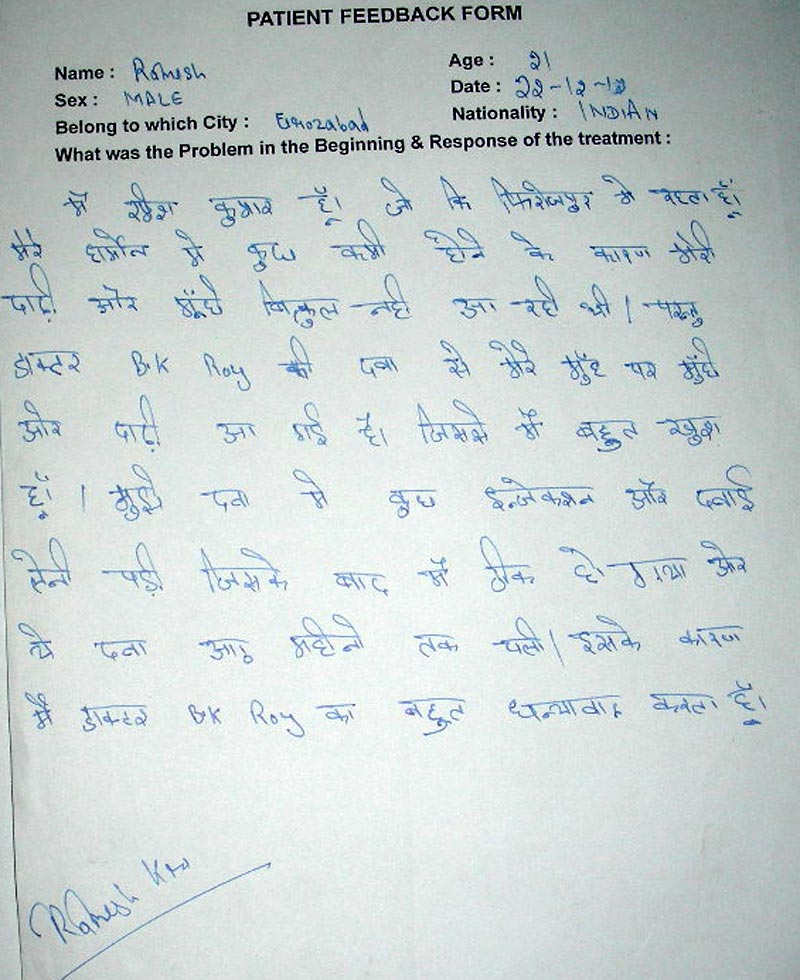 PATIENT FEEDBACK FORM
Name : Ramesh Age : 21
Sex : MALE Date : 22-12-12
Belong to which City : Nationality : INDIAN
What was the Problem in the Beginning & Response of the treatment :
मैं रमेश कुमार हूँ। जो कि फिरोजपुर मे रहता हूँ।
मेरे हार्मोन मे कुछ कमी होने के कारण मेरी
दाढ़ी और मूंछे बिल्कुल नही आ रही थी। परन्तु
डाक्टर B.K Roy की दवा से मेरे मुँह पर मुंछे
और दाढ़ी आ गई है। जिससे मैं बहुत खुश
हूँ। मुझे दवा मे कुछ इन्जेकशन और दवाई
लेनी पड़ी जिसके बाद मैं ठीक हो गया और
ये दवा आठ महीनो तक चली। इसके कारण
मैं डाक्टर B.K Roy का बहुत धन्यावाद करता हूँ।
Ramesh Kr